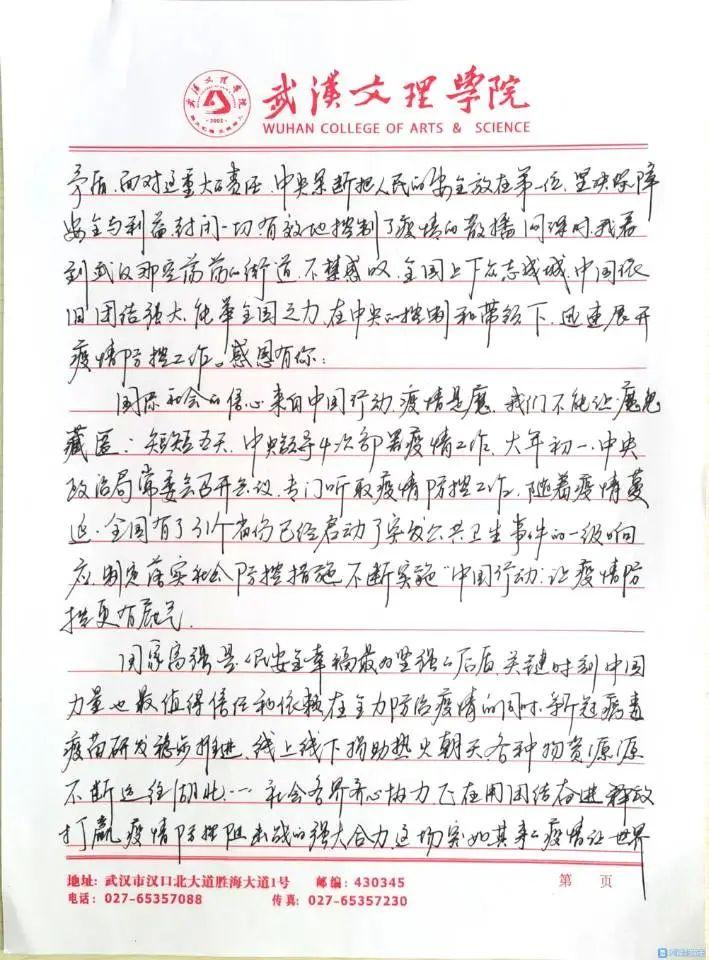 武漢文理學院
WUHAN COLLEGE OF ARTS & SCIENCE
矛盾,面对这重大的责任,中央果断把人民的安全放在第一位,坚决保障
安全与利益,封闭一切有效地控制了疫情的散播同深时,我看
到武汉那空荡荡的街道,不禁感叹,全国上下众志成城,中国依
旧团结强大,能举全国之力,在中央的控制和带领下,迅速展开
疫情防控工作。感恩有你:
国际社会的信心来自中国行动,疫情是魔,我们不能让魔鬼
藏匿:短短五天,中央领导4次部署疫情工作,大年初一,中央
政治局常委会召开会议,专门听取疫情防控工作,随着疫情蔓
延,全国有了31个省份已经启动了突发公共卫生事件的一级响
应,制定落实社会防控措施,不断实施"中国行动:让疫情防
控更有底气.
国家高强是人民安全幸福最为坚强的后盾,关键时刻中国
力量也最值得信任和依赖,在全力防治疫情的同时,新冠病毒
疫苗研发稳步推进,线上线下捐助热火朝天,各种物资源源
不断运往湖北,一社会各界齐心协力飞在用团结奋进释放
打赢疫情防控阻击战的强大合力,这场突如其来的疫情让世界
地址: 武汉市汉口北大道胜海大道1号 邮编: 430345 第 页
电话: 027-65357088 传真: 027-65357230